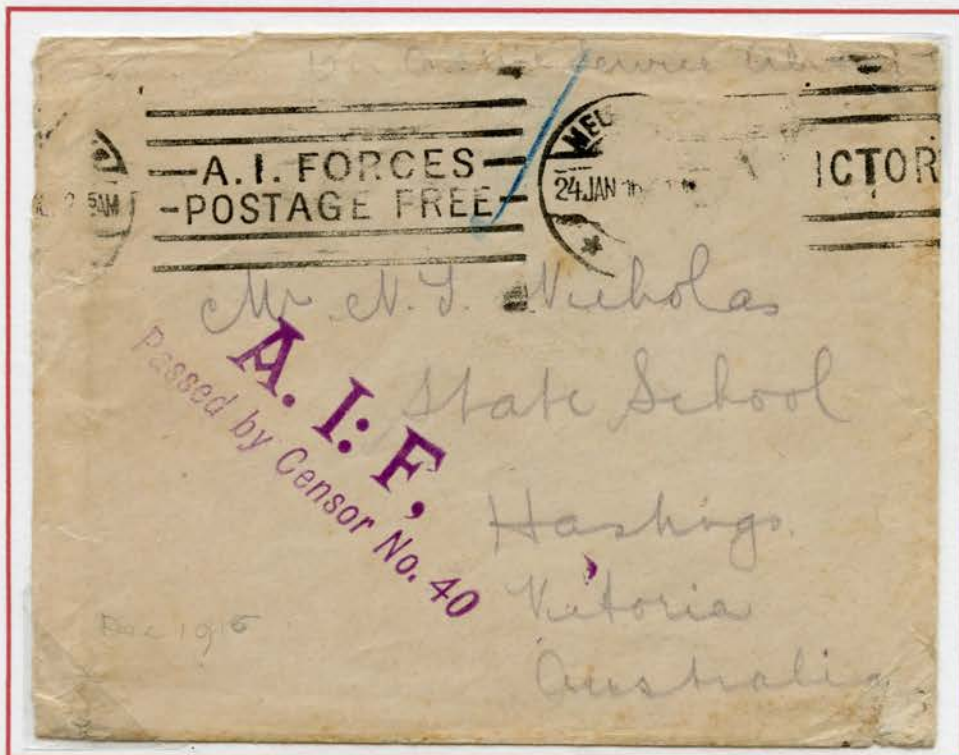 On Active Service
A.I. FORCES
POSTAGE FREE
5AM
MEL
24 JAN 16
ICTOR
Mr N. J. Nicholas
State School
Hastings.
Victoria
Australia
A. I. F,
Passed by Censor No. 40
Dec 1915